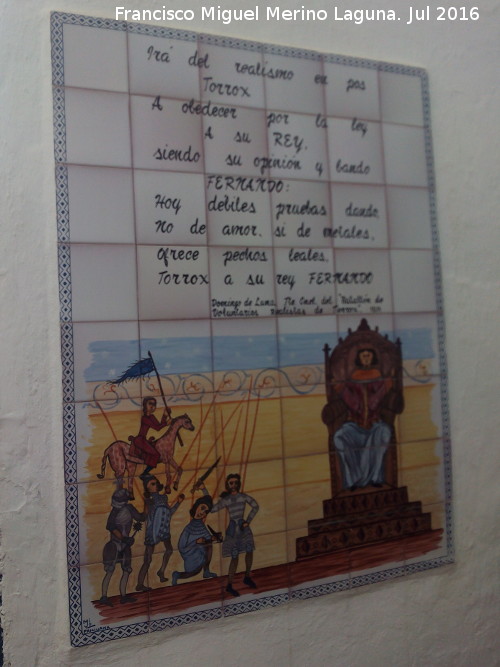 Francisco Miguel Merino Laguna. Jul 2016
Irá del realismo en pos
Torrox
A obedecer por la ley
A su REY,
siendo su opinión y bando
FERNANDO:
Hoy debiles pruebas dando,
No de amor, si de metales,
Ofrece pechos leales,
Torrox a su rey FERNANDO
Domingo de Luna, Tte Cnel. del "Batallón de
Voluntarios Realistas de Torrox"